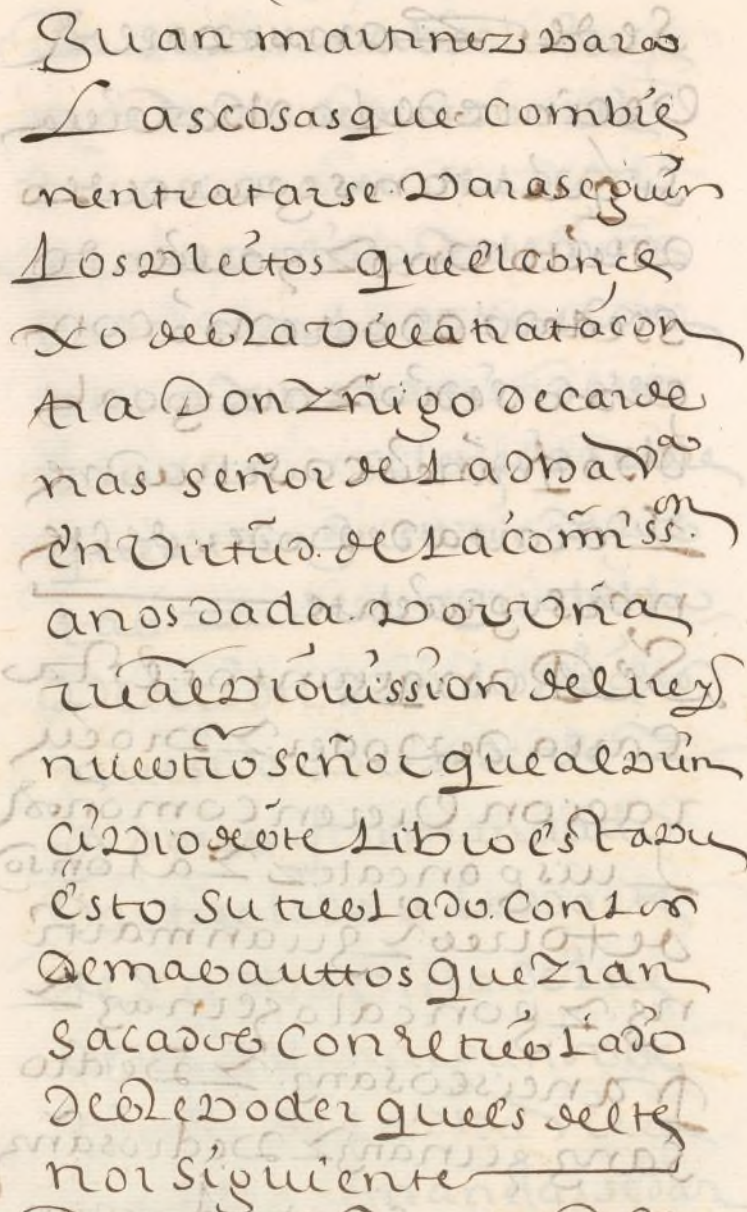 Juan martinez para
Las cosas que combie
nen tratarse para seguir
Los pleitos que el conce
xo desta villa trata con
tra Don Yñigo de carde
nas señor de La dha Vª
en virtud de La comissºn
a nos dada por vna
rreal prouission del rrey
nuestro señor que al prin
cipio deste Libro esta pu
esto su treslado con los
demas auttos que yran
sacados con el treslado
deste poder ques del te
nor siguiente